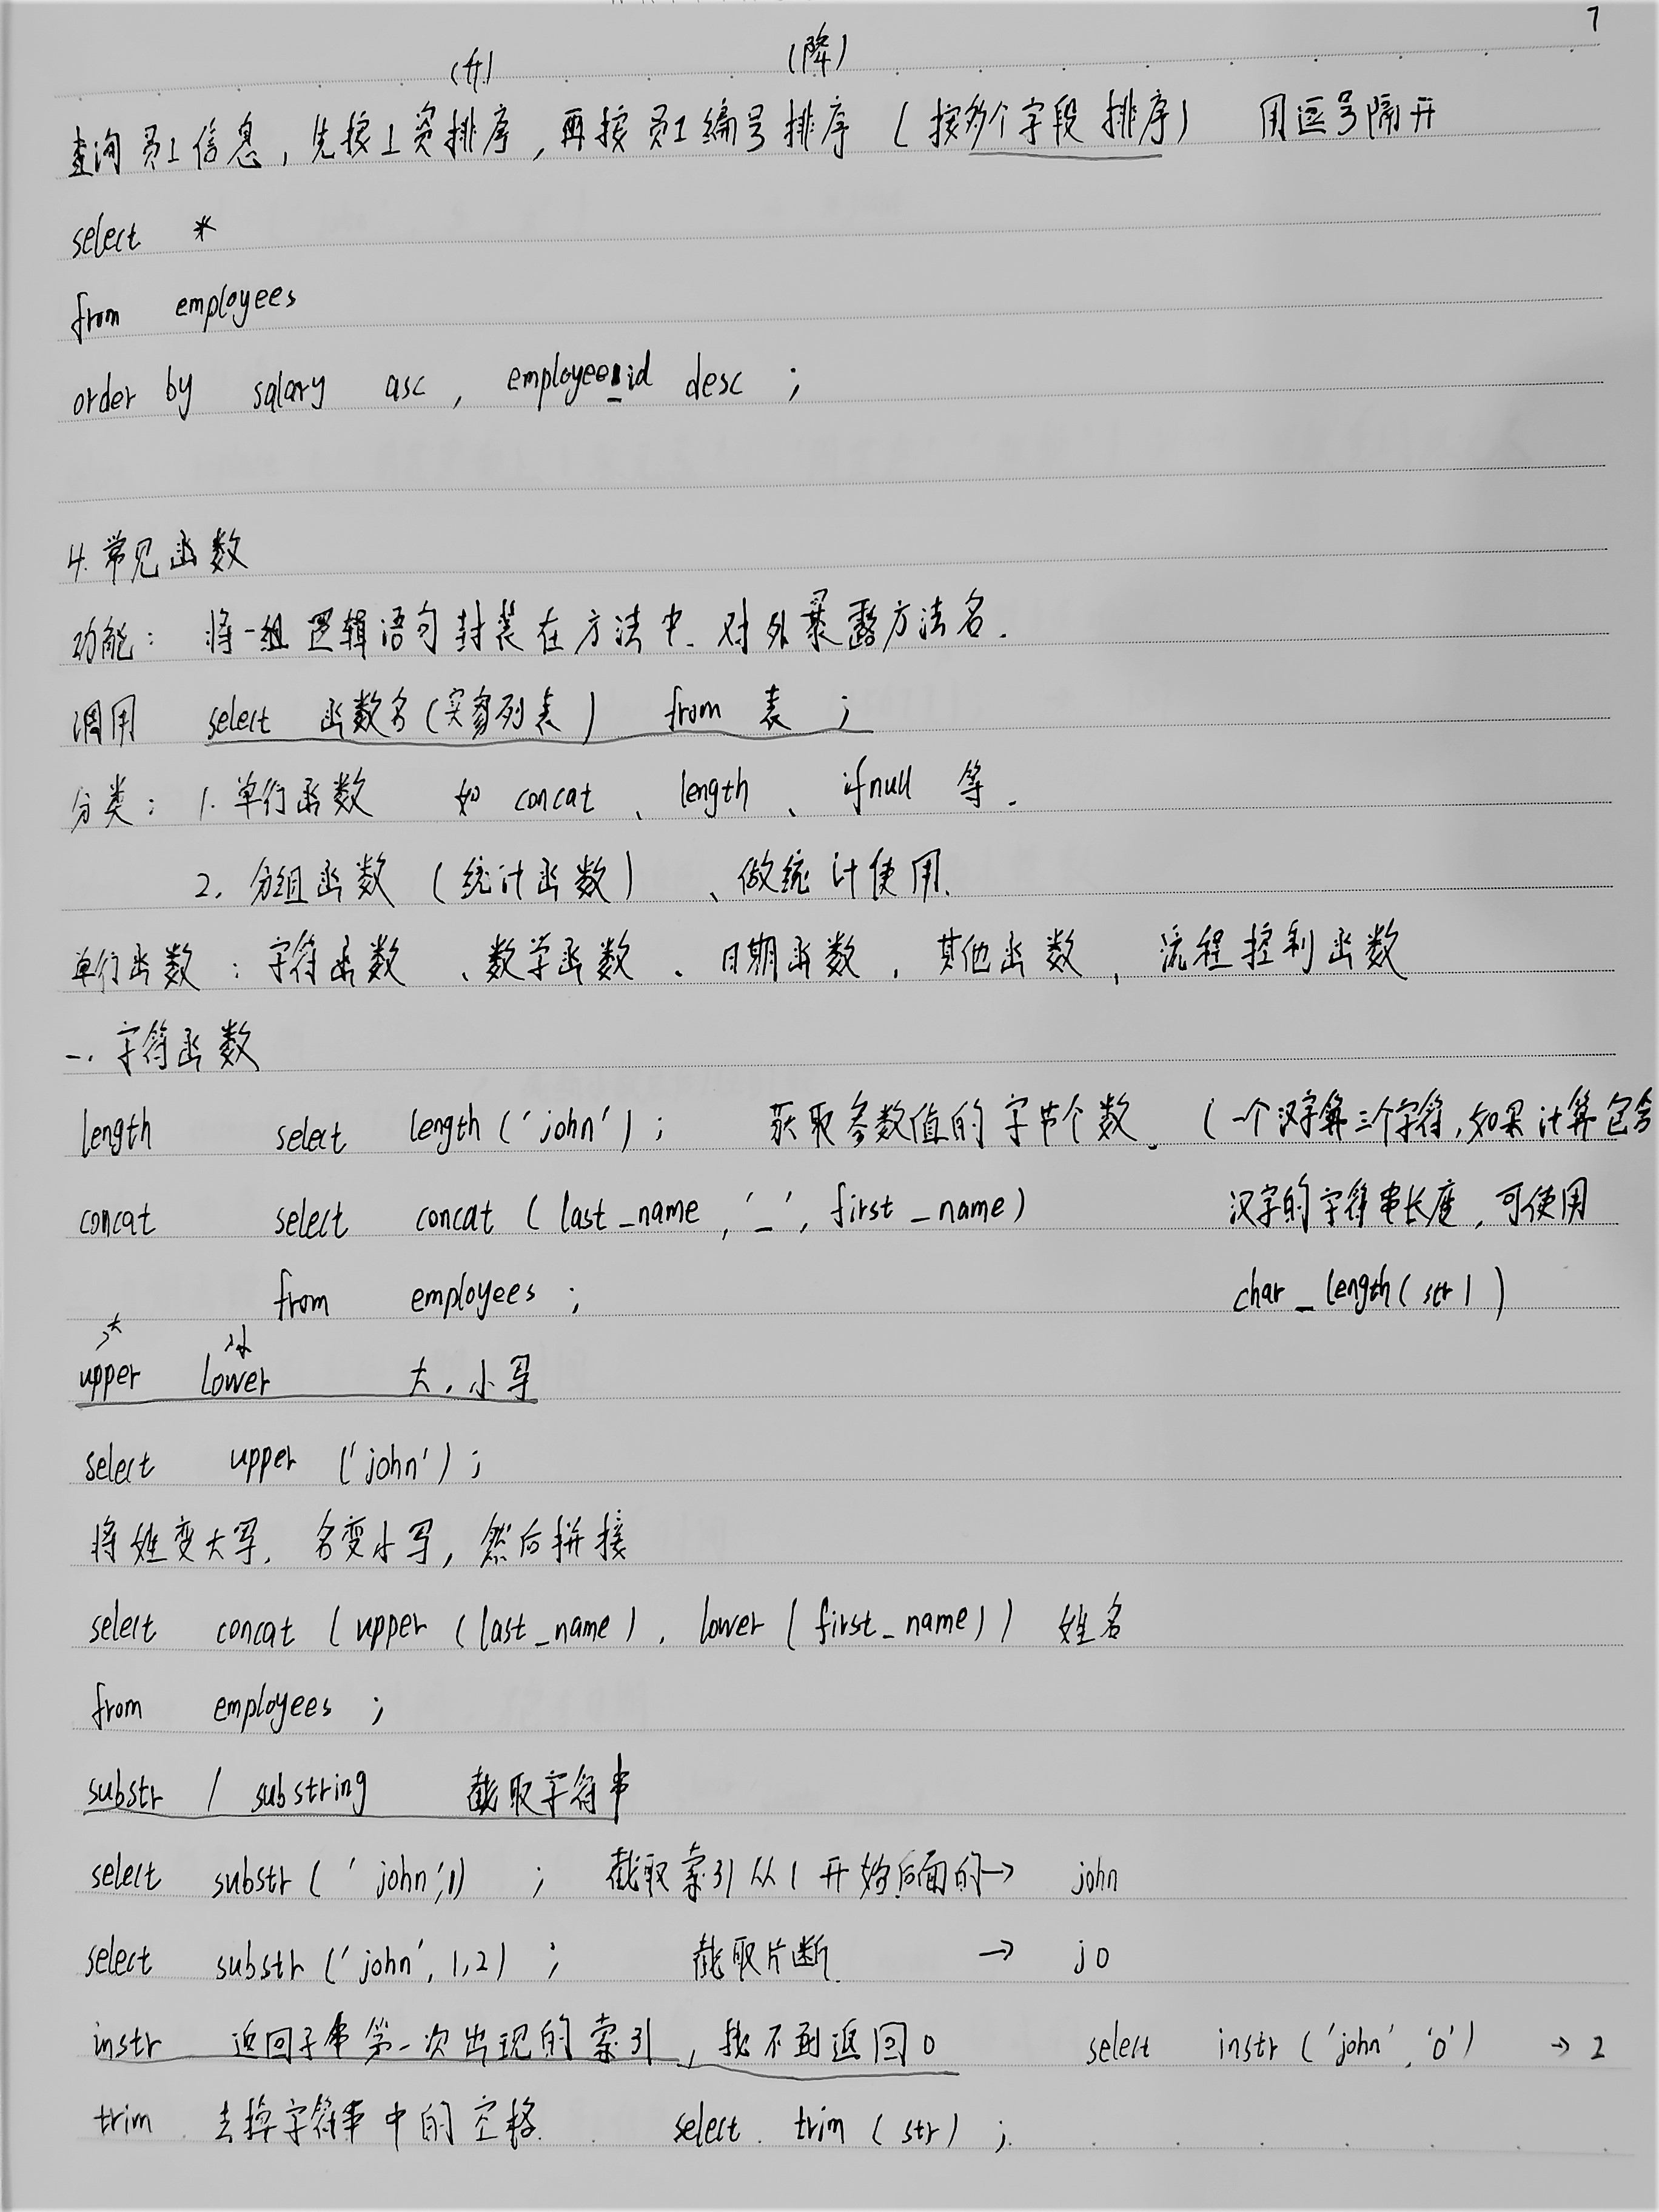 7
(升) (降)
查询员工信息，先按工资排序，再按员工编号排序（按多个字段排序） 用逗号隔开
select *
from employees
order by salary asc , employee_id desc ;
4.常见函数
功能： 将一组逻辑语句封装在方法中.对外暴露方法名.
调用 select 函数名(实参列表) from 表 ;
分类： 1.单行函数 如 concat 、 length 、 ifnull 等.
2. 分组函数 (统计函数) 、做统计使用.
单行函数：字符函数 、数学函数 、日期函数 , 其他函数 , 流程控制函数
一. 字符函数
length select length('john') ; 获取参数值的字节个数. (一个汉字算三个字符,如果计算包含
concat select concat ( last_name ,'_', first_name) 汉字的字符串长度，可使用
from employees ; char_length( str )
→大 →小
upper lower 大.小写
select upper ('john') ;
将姓变大写, 名变小写, 然后拼接
select concat (upper (last_name) , lower (first_name)) 姓名
from employees ;
substr / substring 截取字符串
select substr( 'john',1) ; 截取索引从1开始后面的→ john
select substr ('john', 1,2) ; 截取片断. → jo
instr 返回子串第一次出现的索引，找不到返回0 select instr ('john', 'o') → 2
trim 去掉字符串中的空格. select trim ( str ) ;